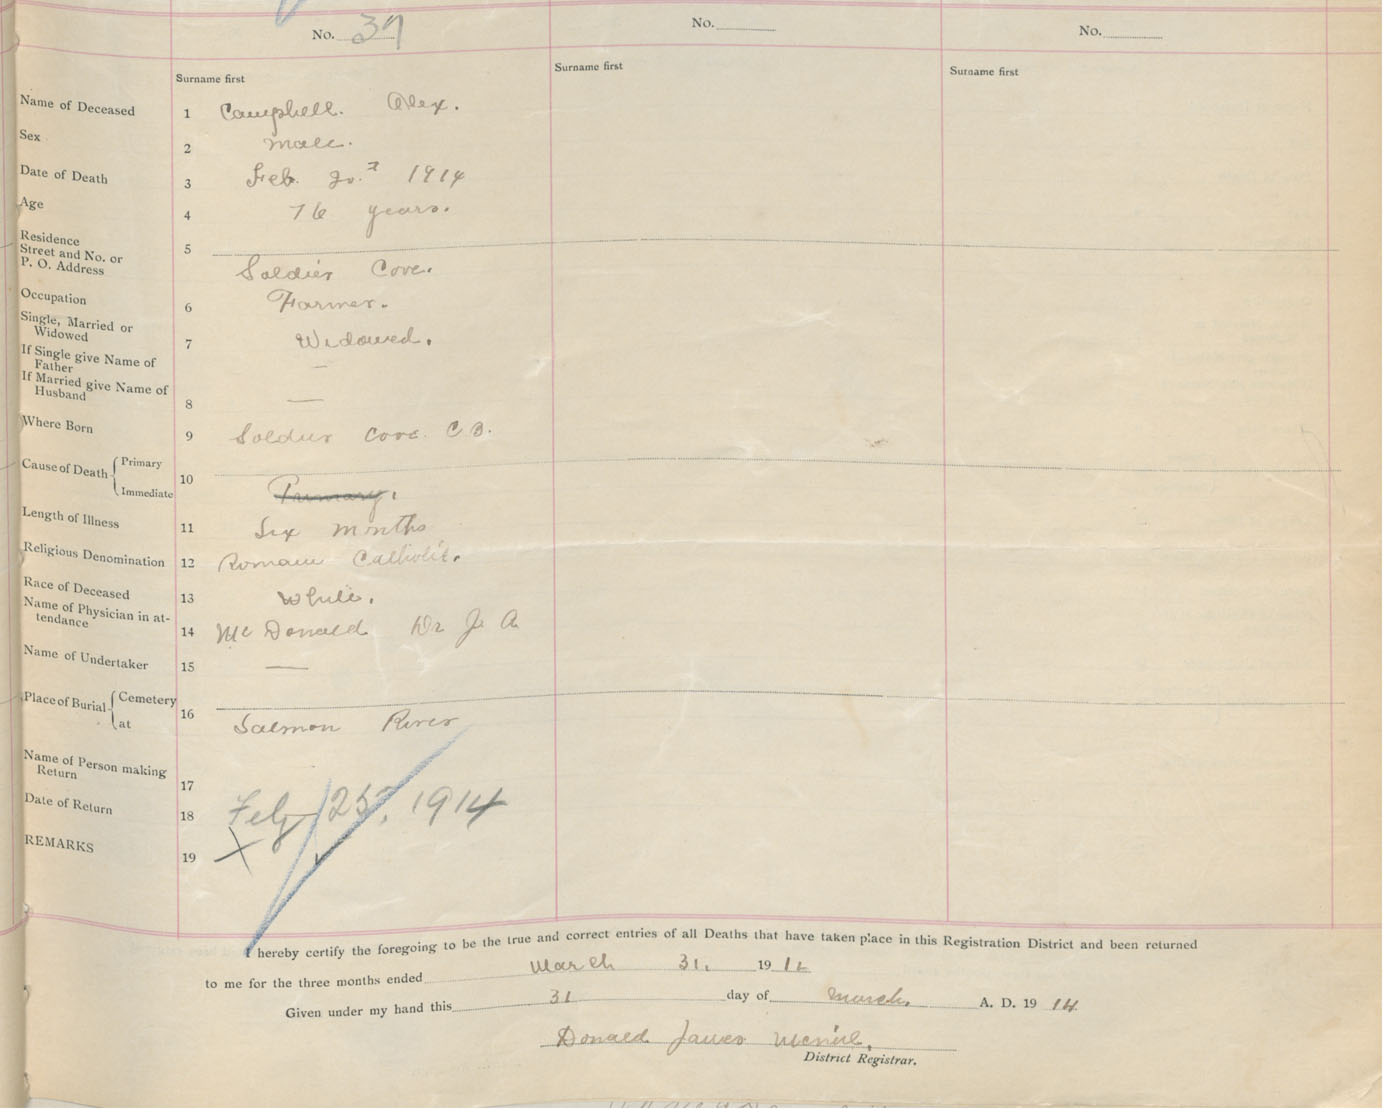 No. 37
No.
No.
Surname first
Surname first
Surname first
Name of Deceased 1 Campbell. Alex.
Sex 2 Male.
Date of Death 3 Feb. 20. 1914
Age 4 76 years.
Residence
Street and No. or
P. O. Address 5 Soldier Cove.
Occupation 6 Farmer.
Single, Married or
Widowed 7 Widowed.
If Single give Name of
Father —
If Married give Name of
Husband 8 —
Where Born 9 Soldier Cove. C B.
Cause of Death { Primary
Immediate 10 Primary.
Length of Illness 11 Six months
Religious Denomination 12 Roman Catholic.
Race of Deceased 13 White.
Name of Physician in at-
tendance 14 McDonald Dr J. A
Name of Undertaker 15 —
Place of Burial { Cemetery
at 16 Salmon River
Name of Person making
Return 17
Date of Return 18 Feby 25, 1914
REMARKS 19 X
I hereby certify the foregoing to be the true and correct entries of all Deaths that have taken place in this Registration District and been returned
to me for the three months ended March 31. 19
Given under my hand this 31 day of March, A. D. 19 14
Donald James McNeil.
District Registrar.